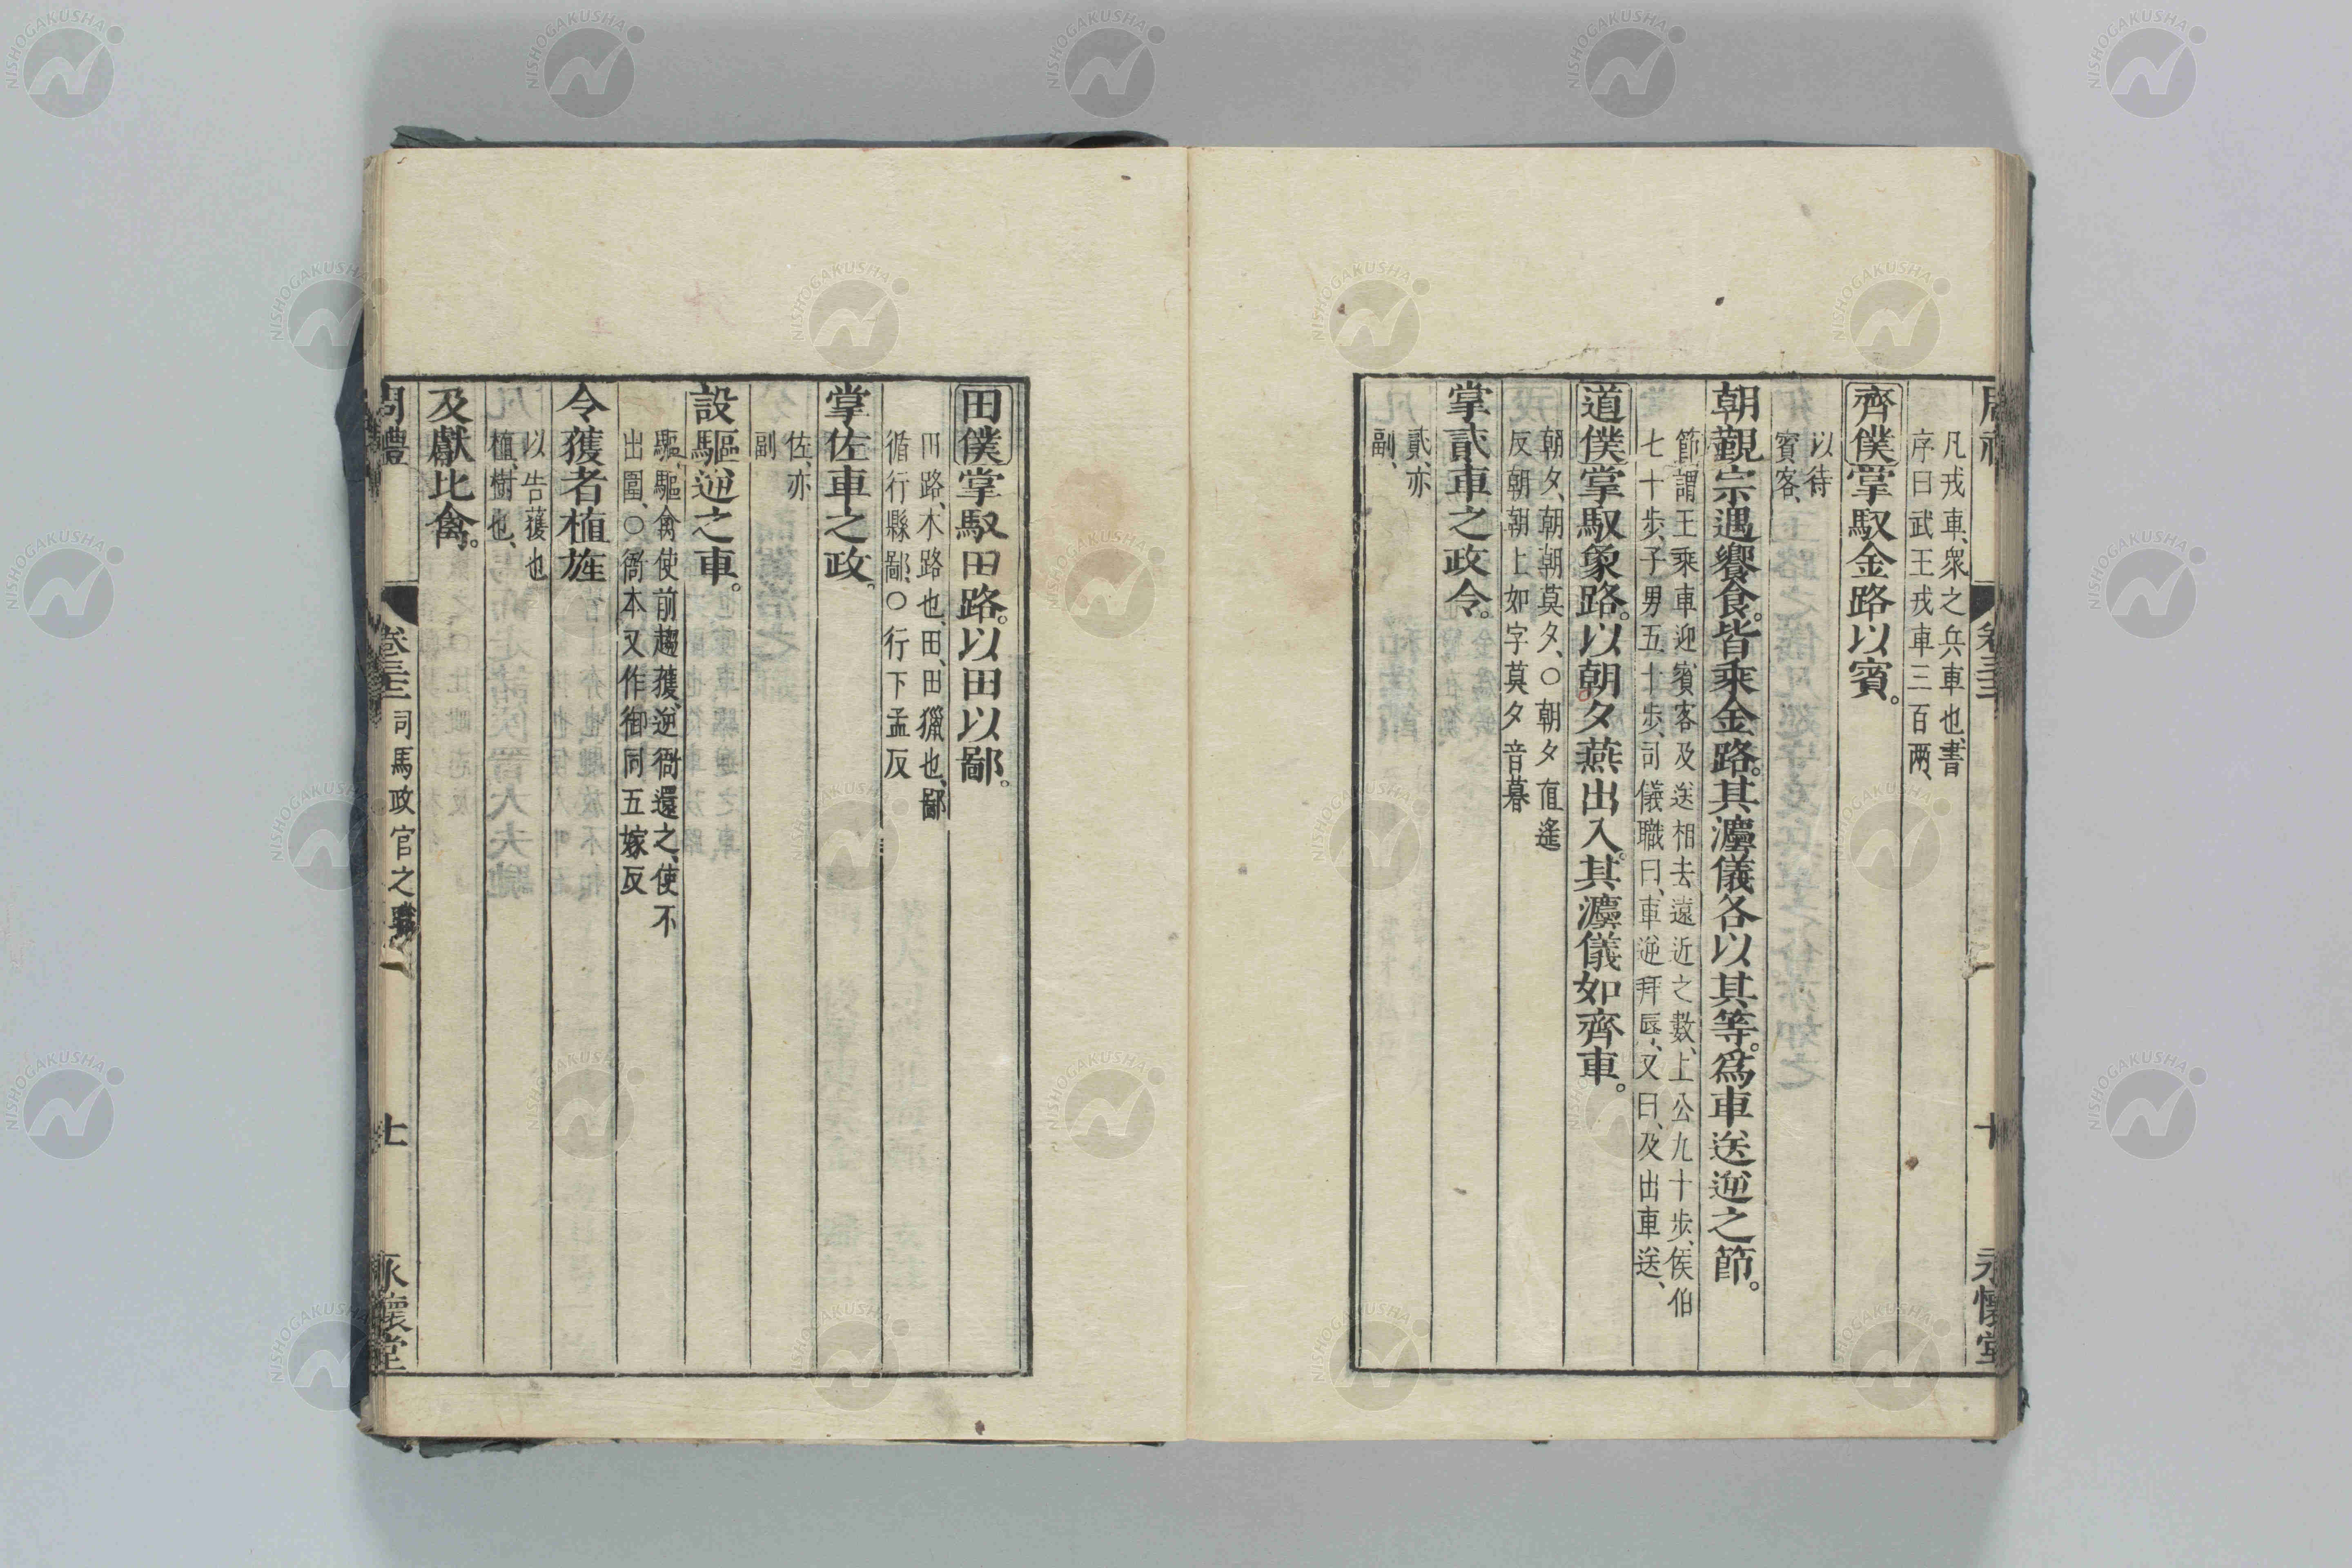 凡戎車、衆之兵車也、書
序曰武王戎車三百兩、
齊僕掌馭金路以賓。
以待
賓客、
朝覲宗遇饗食。皆乘金路。其灋儀各以其等。爲車送逆之節。
節謂王乘車迎賓客及送相去遠近之數、上公九十步、侯伯
七十步、子男五十步、司儀職曰、車逆拜辱、又曰、及出車送、
道僕掌馭象路。以朝夕燕出入。其灋儀如齊車。
朝夕、朝朝莫夕、○朝夕直遙
反朝朝上如字莫夕音暮
掌貳車之政令。
貳、亦
副、
田僕掌馭田路。以田以鄙。
田路、木路也、田、田獵也、鄙
循行縣鄙、○行下孟反
掌佐車之政。
佐、亦
副
設驅逆之車。
驅、驅禽使前趨獲、逆衙還之、使不
出圍、○衙本又作御同五嫁反
令獲者植旌
以告獲也
植、樹也、
及獻比禽。
周禮 卷三十二 司馬政官之職 十一 永懷堂